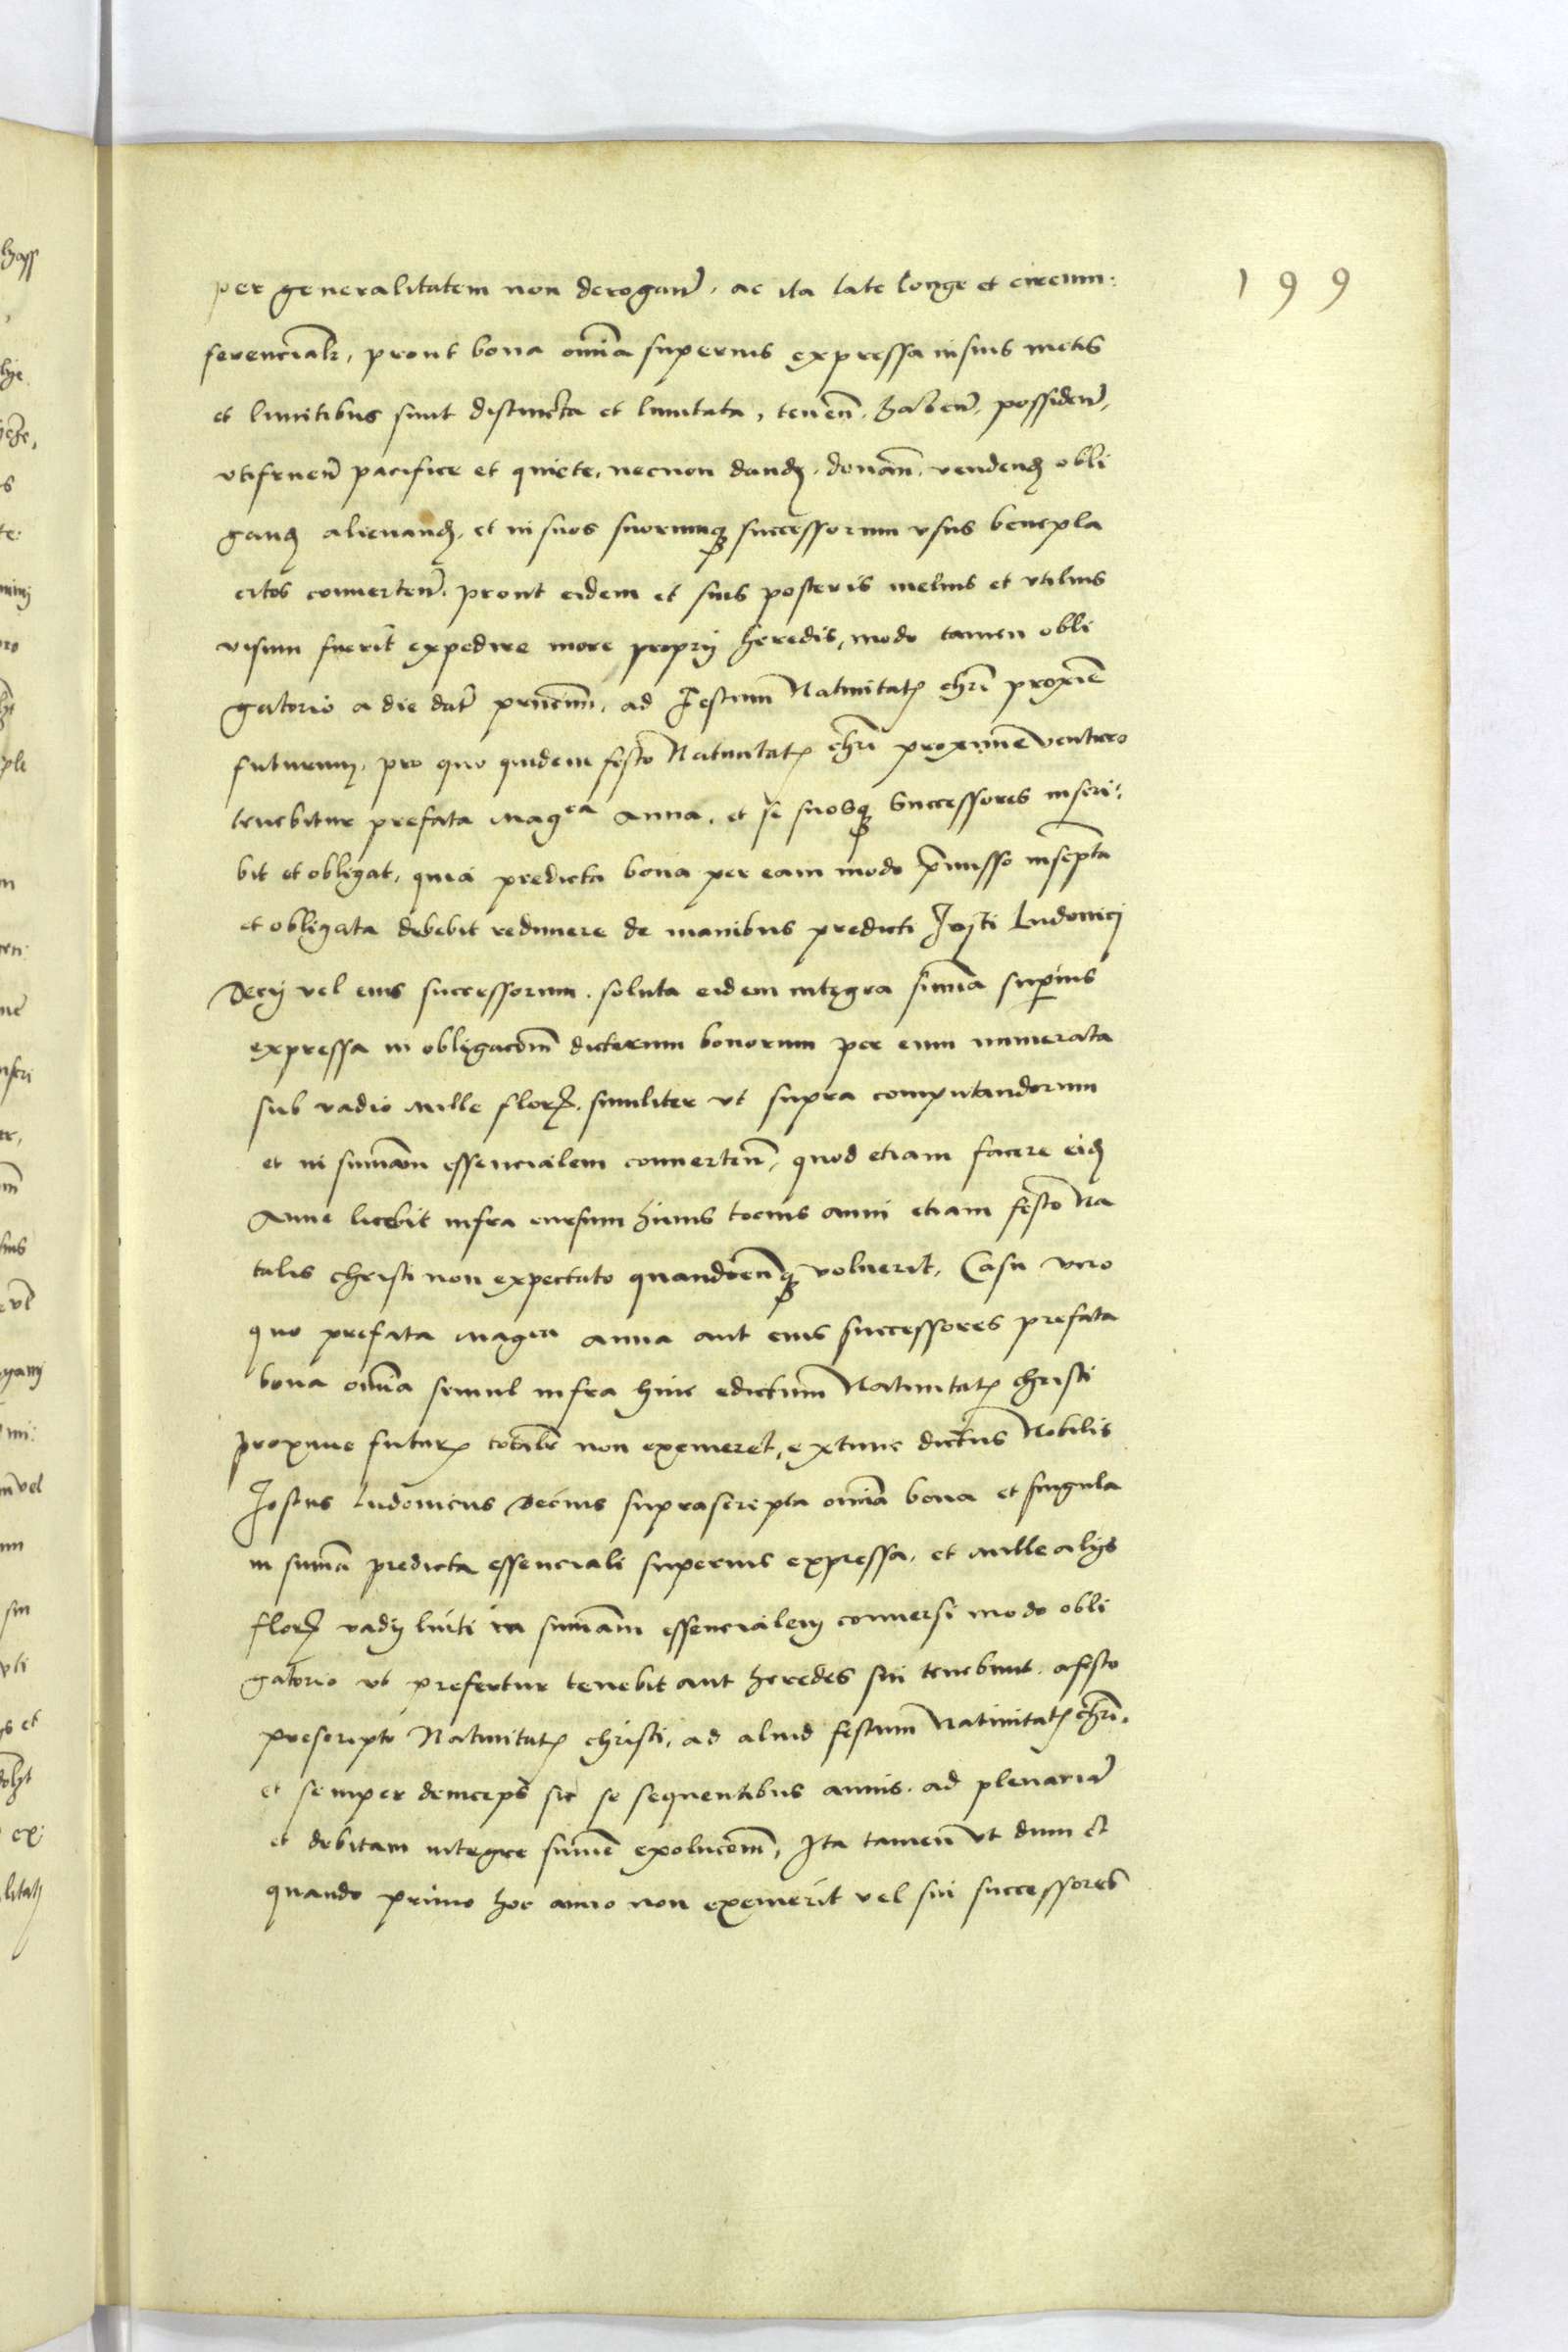 199
per generalitatem non derogan̄. ac ita late longe et circum:
ferencialr̄, prout bona om̄ia superius expressa in suis metis
et limitibus sunt distincta et limitata, tenen̄. haben̄. possiden̄.
vtifruen̄ pacifice et quiete. necnon dand. donan̄. vendend obli
gand alienand. et in suos suorumq successorum vsus benepla
citos conuerten̄. prout eidem et suis posteris melius et vtilius
visum fuerit expedire more proprij heredis, modo tamen obli
gatorio a die dat̄ pn̄cium. ad Festum Natiuitat chri proxime
futurum. pro quo quidem festo Natiuitat chri proxime venturo
tenebitur prefata Magca Anna. et se suosq Successores inscri:
bit et obligat. quia predicta bona per eam modo p̄misso inscpta
et obligata debebit redimere de manibus predicti Josti Ludouici
Decij vel eius successorum. soluta eidem integra summa superius
expressa in obligacōem dictorum bonorum per eum numerata
sub vadio Mille flor. similiter vt supra computandorum
et in summam essencialem conuerten̄, quod etiam facere eid
Anne licebit infra cursum huius tocius anni etiam festo Na
talis christi non expectato quandocunq voluerit. Casu vero
quo prefata Magca Anna aut eius successores prefata
bona om̄ia semul infra hinc edictum Natiuitat christi
proxime futur totalr̄ non exemeret, extunc dictus Nobilis
Jostus Ludouicus Decius suprascripta om̄ia bona et singula
in summa predicta essenciali superius expressa. et Mille alijs
flor vadij luiti in summam essencialem conuersi modo obli
gatorio vt prefertur tenebit aut heredes sui tenebunt. a festo
prescripto Natiuitat christi. ad aliud festum Natiuitat chri.
et semper deinceps sic se sequentibus annis. ad plenariam
et debitam integre summe exolucōem, Ita tamen vt dum et
quando primo hoc anno non exemerit vel sui successores